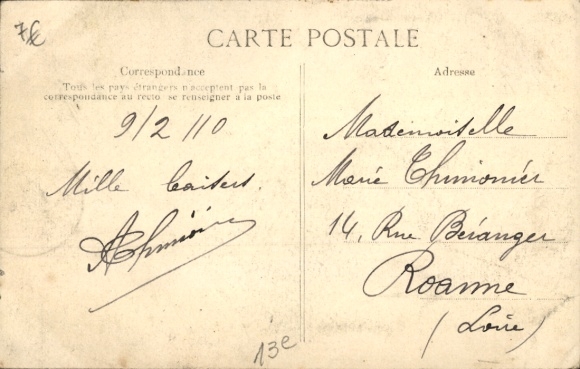 7€
CARTE POSTALE
Correspondance
Tous les pays étrangers n'acceptent pas la
correspondance au recto se renseigner a la poste
9/2/10
Mille baisers.
AThimonier
Adresse
Mademoiselle
Marie Thimonier
14, Rue Béranger
Roanne
(Loire)
13e